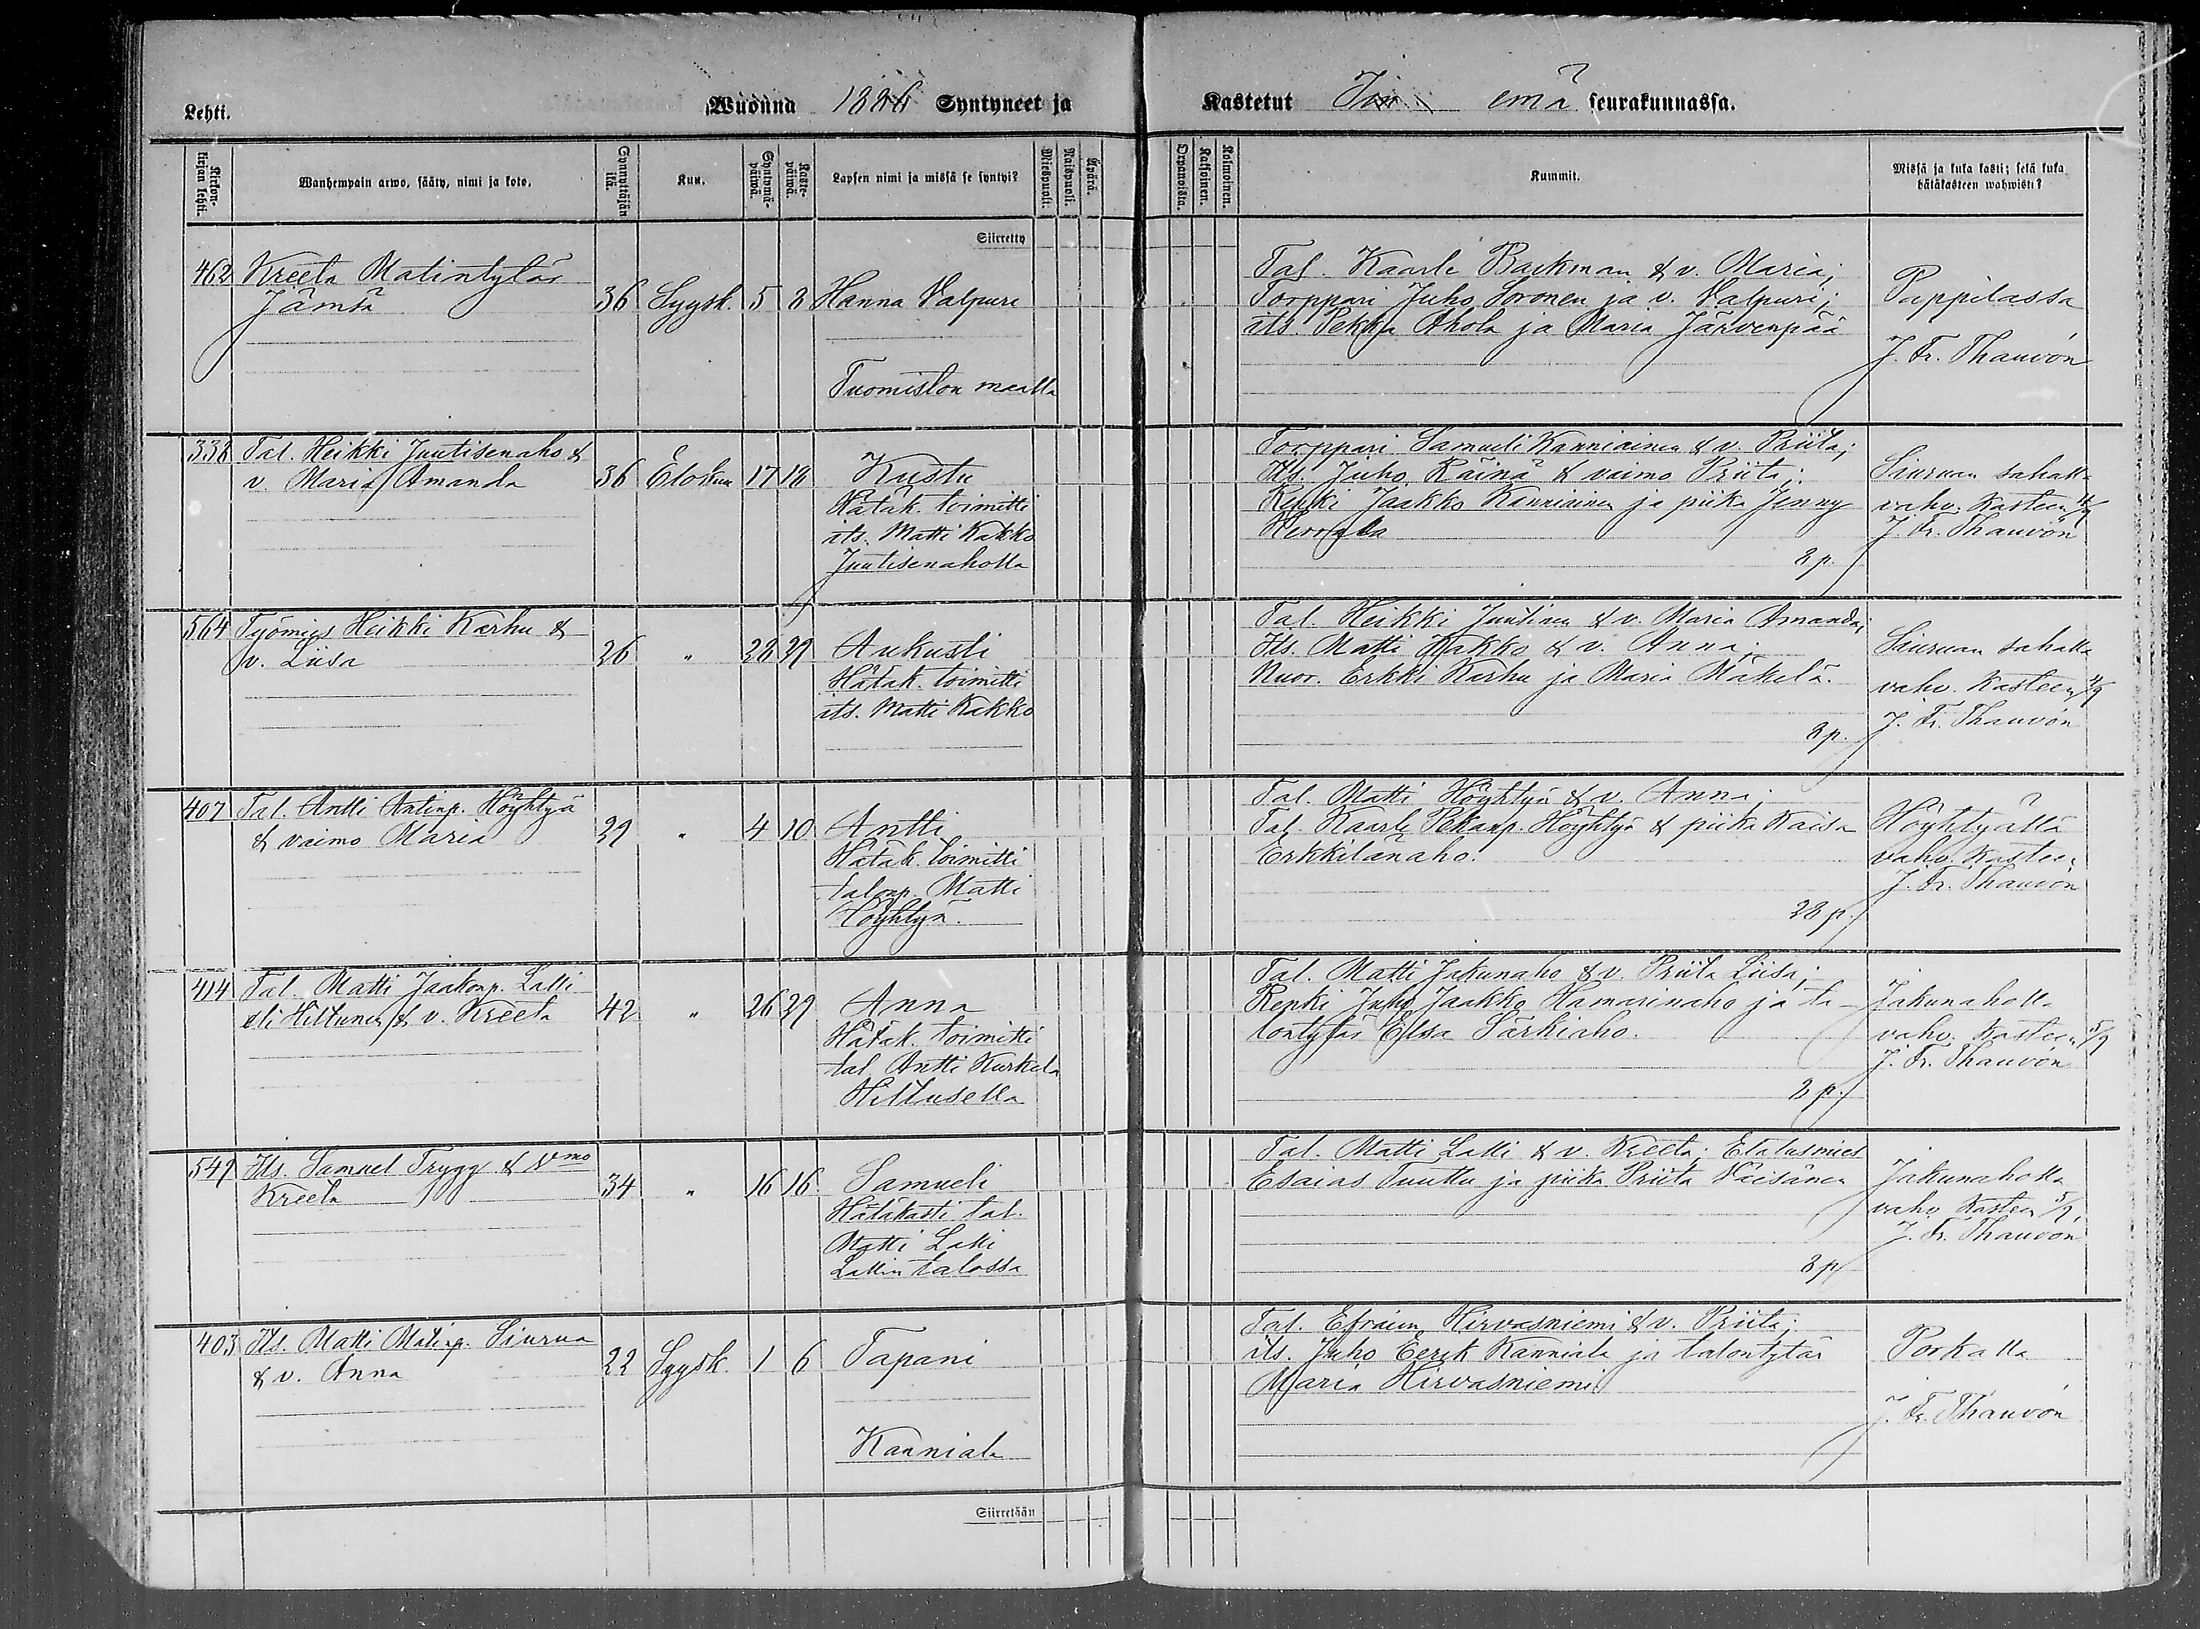 Lehti.
Wuonna 1886 Syntyneet ja
Kastetut Iin emä seurakunnassa.
Kirkonkirjan lehti.
Wanhempain arwo, sääty, nimi ja koto.
Synnyttäjän ikä.
Kuu.
Syntymäpäiwä.
Kastepäiwä.
Lapsen nimi ja missä se syntyi?
Miespuoli.
Naispuoli.
Äpärä.
Orpanoista.
Kaksoinen.
Kolmoinen.
Kummit.
Missä ja kuka kasti; sekä kuka
hätäkasteen wahwisti?
Siirretty
462 Kreeta Matintytär
Jämsä
36 Syysk. 5 8 Hanna Valpuri
Tuomiston maalla
Tal. Kaarle Backman & v. Maria;
Torppari Juho Soronen ja v. Valpuri;
its. Pekka Ahola ja Maria Järvenpää
Pappilassa
J. Fr. Thauvón
338 Tal. Heikki Juutisenaho &
v. Maria Amanda
36 Elokuu 17 18 Kustu
Hätäk. toimitti
its. Matti Kakko
Juutisenaholla
Torppari Samueli Kanniainen & v. Priita;
Its. Juho Räinä & vaimo Priita;
Renki Jaakko Kanniainen ja piika Jenny
Herrala
8 p.
Siuruan sahalla
vahv. kasteen
J. Fr. Thauvón
564 Työmies Heikki Karhu &
v. Liisa
26 " 28 29 Aukusti
Hätäk. toimitti
its. Matti Kakko
Tal. Heikki Juutinen & v. Maria Amanda;
Its. Matti Kakko & v. Anna,
Nuor. Erkki Karhu ja Maria Mäkelä.
8 p.
Siuruan sahalla
vahv. kasteen
J. Fr. Thauvón
407 Tal. Antti Antinp. Höyhtyä
& vaimo Maria
29 " 4 10 Antti
Hätäk. toimitti
talonp. Matti
Höyhtyä.
Tal. Matti Höyhtyä & v. Anna;
Tal. Kaarle Pekanp. Höyhtyä & piika Kaisa
Erkkilänaho.
28 p.
Höyhtyällä
vahv. kasteen
J. Fr. Thauvón
414 Tal. Matti Jaakonp. Lalli
eli Hiltunen & v. Kreeta
42 " 26 29 Anna
Hätäk. toimitti
tal Antti Kurkela
Hiltusella
Tal. Matti Jakunaho & v. Priita Liisa;
Renki Juho Jaakko Hamarinaho ja ta-
lontytär Elsa Särkiaho.
8 p.
Jakunaholla
vahv. kasteen 5/9
J. Fr. Thauvón
549 Its. Samuel Trygg & vmo
Kreeta
34 " 16 16 Samueli
Hätäkasti tal.
Matti Lalli
Lallin talossa
Tal. Matti Lalli & v. Kreeta; Elatusmies
Esaias Tuuttu ja piika Priita Väisänen
8 p
Jakunaholla
vahv. kasteen 5/9.
J. Fr. Thauvón
403 Its. Matti Matinp. Siurua
& v. Anna
22 Syysk. 1 6 Tapani
Kanniala
Tal. Efraim Hirvasniemi & v. Priita;
its. Juho Eerik Kanniala ja talontytär
Maria Hirvasniemi
Porkalla
J. Fr. Thauvón
Siirretään